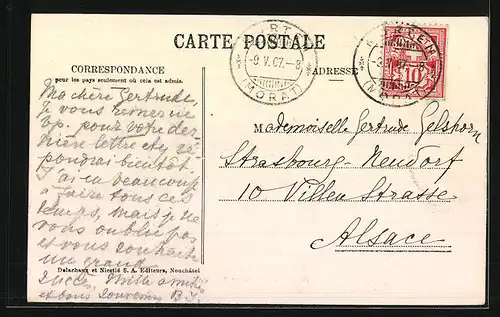 CARTE POSTALE
CORRESPONDANCE
pour les pays seulement où cela est admis.
ADRESSE
9.V.07.-8
(MORAT)
9.V.07.-8
(MORAT)
10
Ma chère Gertrude,
Je vous remercie
bp. pour votre der-
nière lettre et y ré-
pondrai bientôt.
J'ai eu beaucoup
à faire tous ces
jours, mais je ne
vous oublie pas
et vous souhaite
un grand
succès. Mille amitiés
et bons souvenirs B.J.
Mademoiselle Gertrude Gelshorn
Strasbourg-Neudorf
10 Villen Strasse
Alsace
Delachaux et Niestlé S. A. Editeurs, Neuchâtel